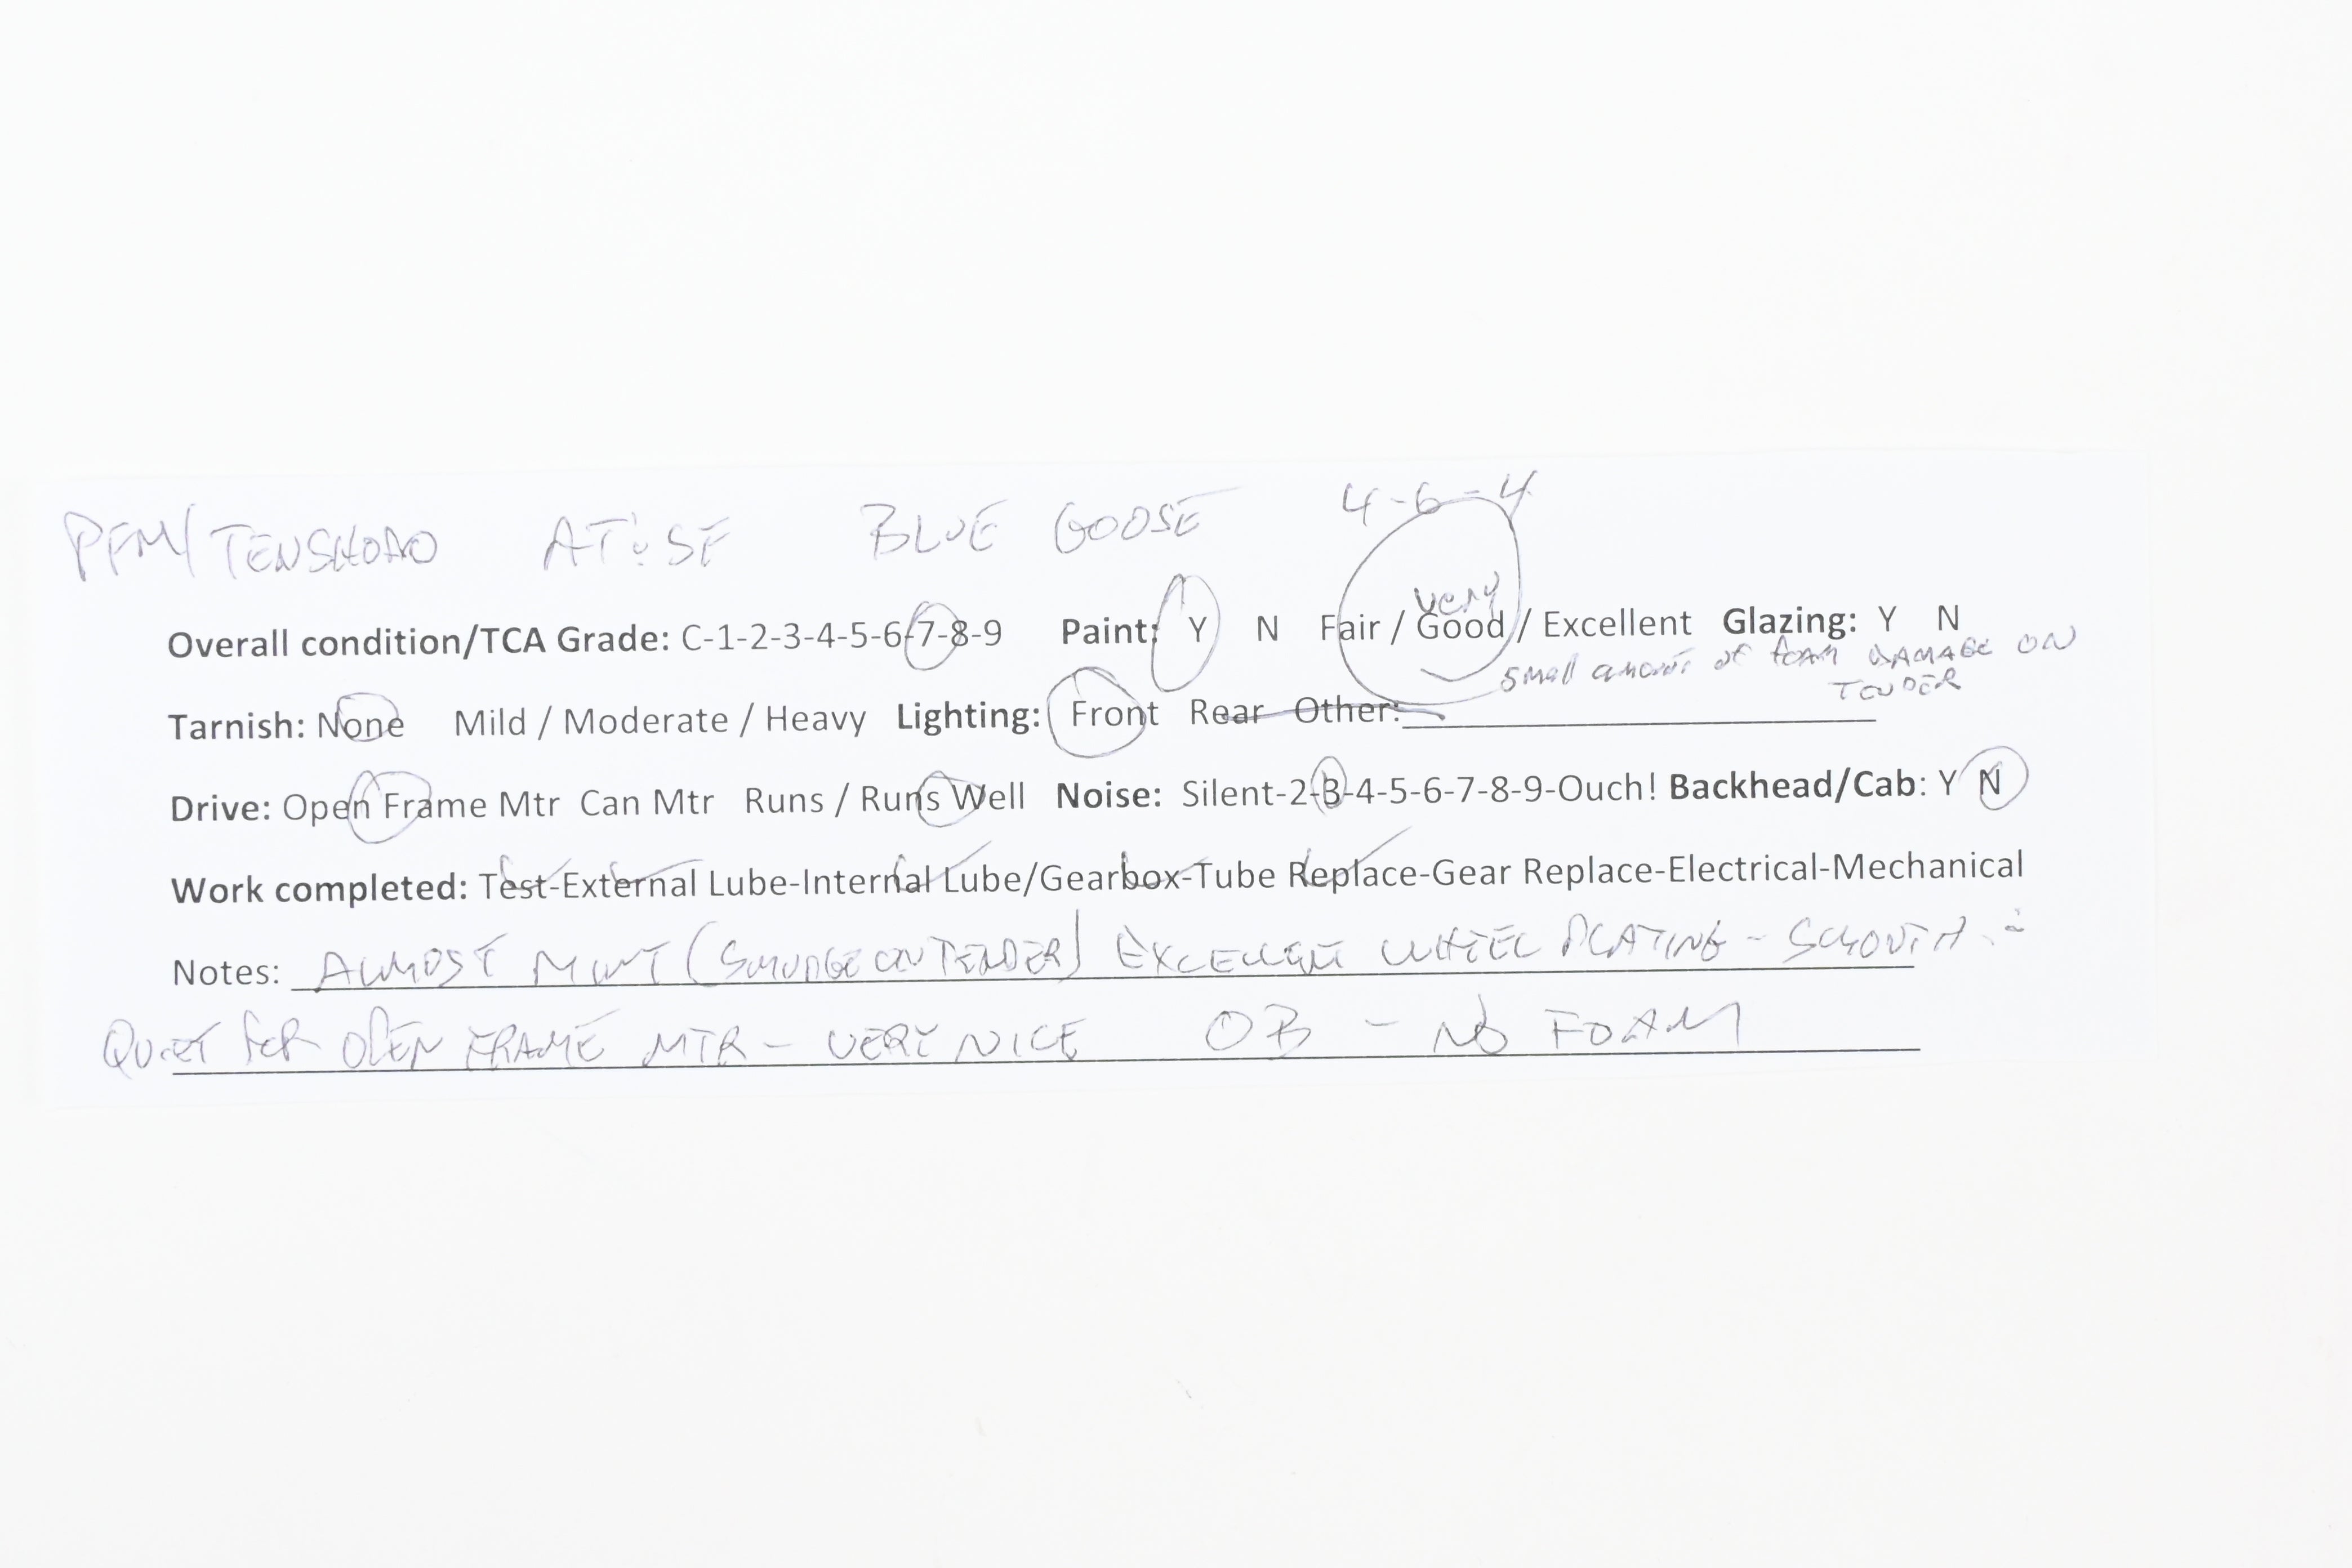 PFM/TENSHODO AT&SF BLUE GOOSE 4-6-4
very
Overall condition/TCA Grade: C-1-2-3-4-5-6-7-8-9 Paint: Y N Fair / Good / Excellent Glazing: Y N
small amount of foam DAMAGE ON
TENDER
Tarnish: None Mild / Moderate / Heavy Lighting: Front Rear Other:
Drive: Open Frame Mtr Can Mtr Runs / Runs Well Noise: Silent-2-3-4-5-6-7-8-9-Ouch! Backhead/Cab: Y N
Work completed: Test-External Lube-Internal Lube/Gearbox-Tube Replace-Gear Replace-Electrical-Mechanical
Notes: ALMOST MINT (SMUDGE ON TENDER) EXCELLENT WHEEL PLATING - SMOOTH &
QUIET FOR OPEN FRAME MTR - VERY NICE OB - NO FOAM